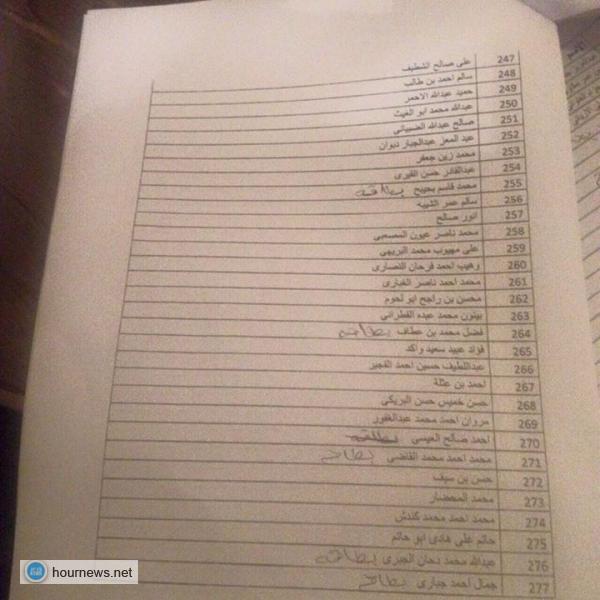 247 على صالح الشطيف
248 سالم احمد بن طالب
249 حميد عبدالله الاحمر
250 عبدالله محمد ابو الغيث
251 صالح عبدالله الضبياني
252 عبد المعز عبدالجبار دبوان
253 محمد زين جعفر
254 عبدالقادر حسن القيرى
255 محمد قاسم بحيبح بطاقه
256 سالم عمر الشيبه
257 انور صالح
258 محمد ناصر عبون المصعبي
259 على مهيوب محمد البريهي
260 وهيب احمد فرحان النصارى
261 محمد احمد ناصر الغبارى
262 محسن بن راجح ابو لحوم
263 بينون محمد عبده القطراني
264 فضل محمد بن عطاف بطاقه
265 فؤاد عبيد سعيد واكد
266 عبداللطيف حسين احمد الفجير
267 احمد بن علة
268 حسن خميس حسن البريكي
269 مروان احمد محمد عبدالغفور
270 احمد صالح العيسي بطاقه
271 محمد احمد محمد القاضي
272 حسن بن سيف
273 محمد المحضار
274 محمد احمد محمد كندش
275 حاتم على هادى ابو حاتم
276 عبدالله محمد دحان الجبرى بطاقه
277 جمال احمد جبارى
hournews.net